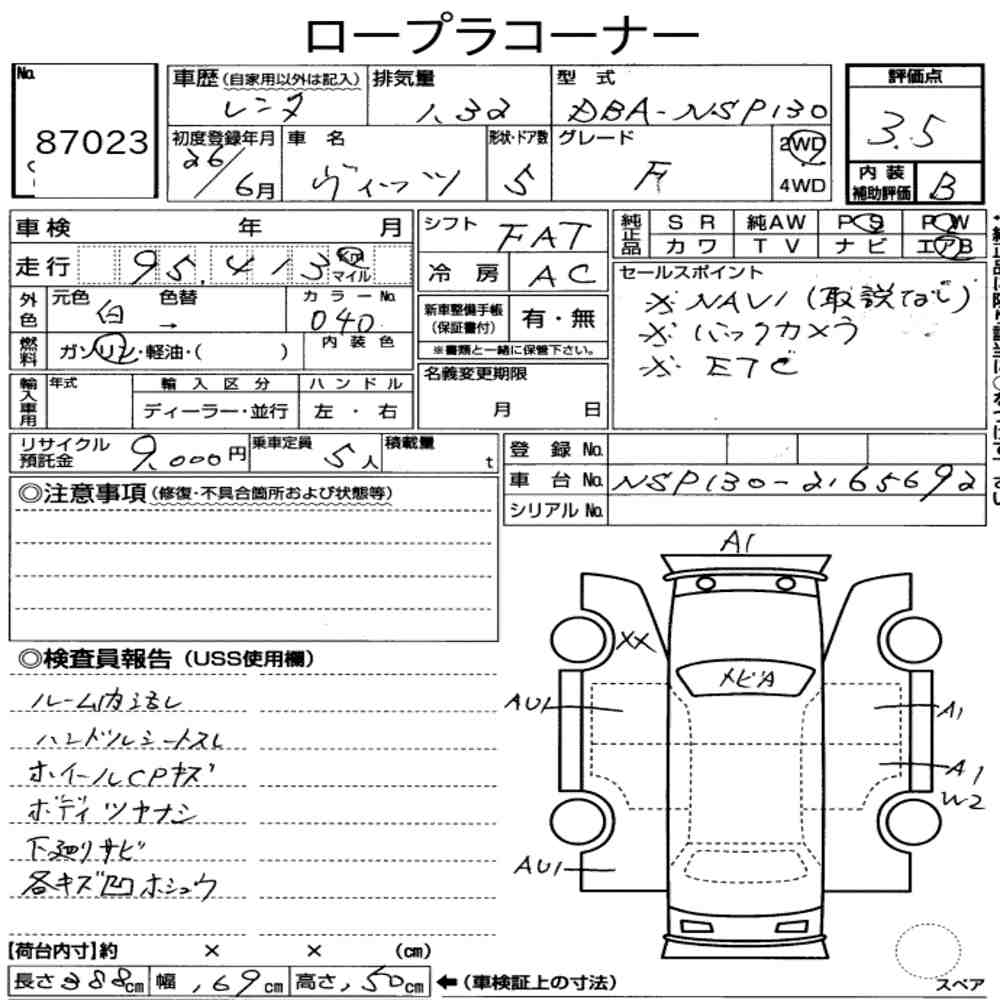 ロープラコーナー
No. 87023
車歴(自家用以外は記入) レンタ
排気量 1.32
型式 DBA-NSP130
評価点 3.5
初度登録年月 26/6月
車名 ヴィッツ
形状・ドア数 5
グレード F
2WD
4WD
内装補助評価 B
車検 年 月
走行 95.413 Km マイル
外色 元色 白 色替 → カラーNo. 040
燃料 ガソリン・軽油・( ) 内装色
輸入車用 年式 輸入区分 ハンドル
ディーラー・並行 左・右
シフト FAT
冷房 AC
新車整備手帳(保証書付) 有・無
※書類と一緒に保管下さい。
名義変更期限
月 日
純正品 SR 純AW PS PW
カワ TV ナビ エアB
セールスポイント
※ NAVI (取説なし)
※ バックカメラ
※ ETC
リサイクル預託金 9.000円
乗車定員 5人
積載量 t
登録No.
車台No. NSP130-2165692
シリアルNo.
◎注意事項(修復・不具合箇所および状態等)
◎検査員報告(USS使用欄)
ルーム内汚レ
ハンドルシートスレ
ホイールCPキズ
ボディツヤナシ
下廻りサビ
各キズ凹ホシュウ
A1
XX
メビA
AU1
A1
A1
W2
AU1
スペア
【荷台内寸】約 × × (cm)
長さ388cm 幅169cm 高さ150cm ←(車検証上の寸法)